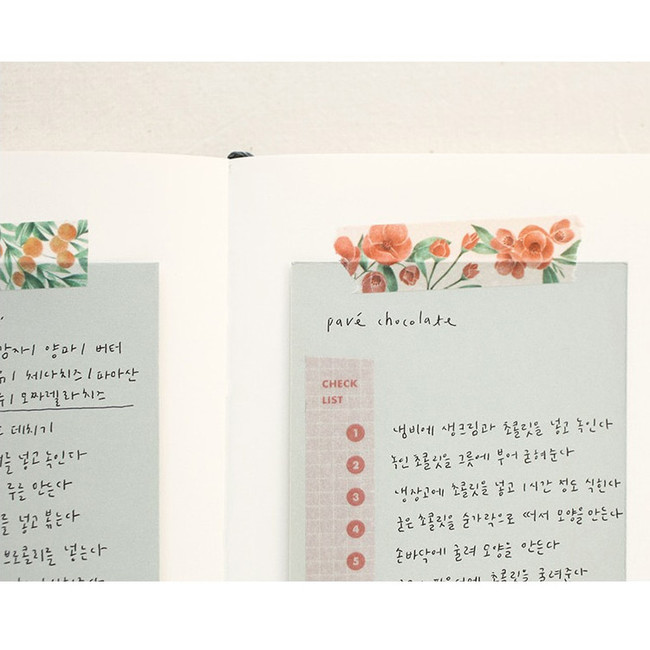 감자 / 양파 / 버터
/ 체다치즈 / 파마산
/ 모짜렐라치즈
데치기
넣고 녹인다
루를 만든다
넣고 볶는다
브로콜리를 넣는다
pavé chocolate
CHECK
LIST
1 냄비에 생크림과 초콜릿을 넣고 녹인다
2 녹인 초콜릿을 그릇에 부어 굳혀준다
3 냉장고에 초콜릿을 넣고 1시간 정도 식힌다
4 굳은 초콜릿을 숟가락으로 떠서 모양을 만든다
5 손바닥에 굴려 모양을 만든다
초콜릿을 굴려준다